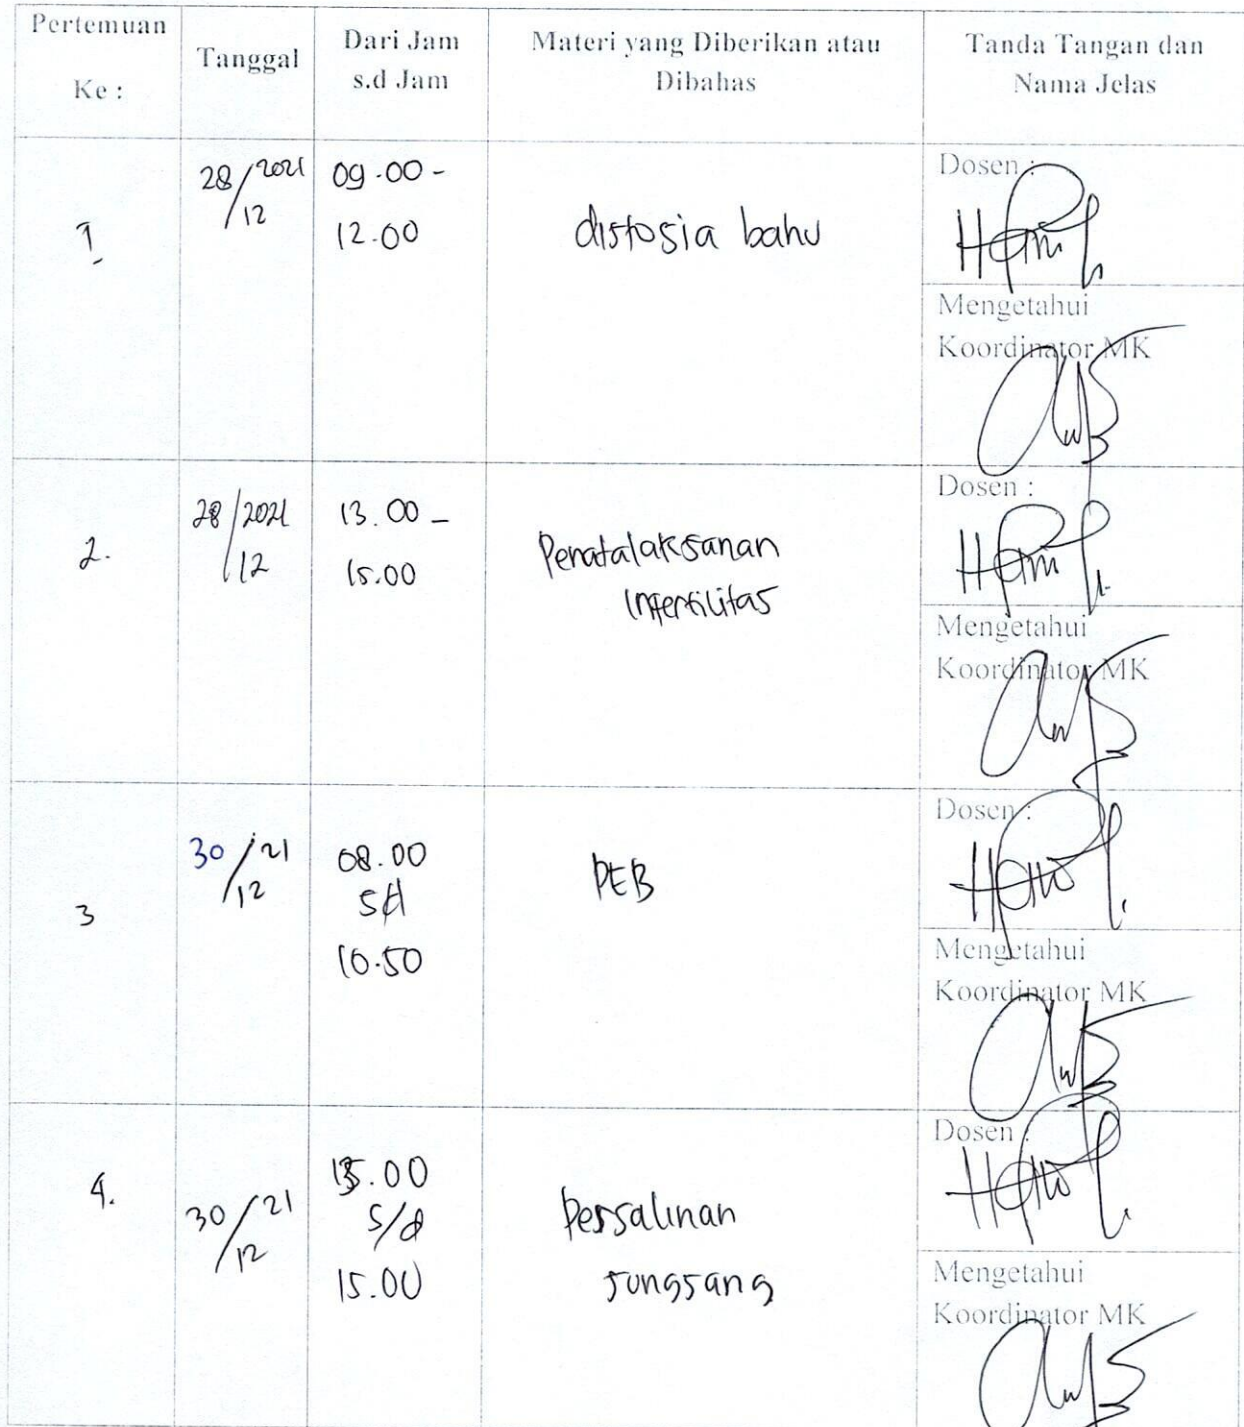 Pertemuan
Ke :
Tanggal
Dari Jam
s.d Jam
Materi yang Diberikan atau
Dibahas
Tanda Tangan dan
Nama Jelas
1
28/2021
12
09.00 -
12.00
distosia bahu
Dosen :
Mengetahui
Koordinator MK
2.
28/2021
12
13.00 -
15.00
Penatalaksanan
Infertilitas
Dosen :
Mengetahui
Koordinator MK
3
30/21
12
08.00
s/d
10.50
PEB
Dosen :
Mengetahui
Koordinator MK
4.
30/21
12
13.00
s/d
15.00
Persalinan
sungsang
Dosen :
Mengetahui
Koordinator MK